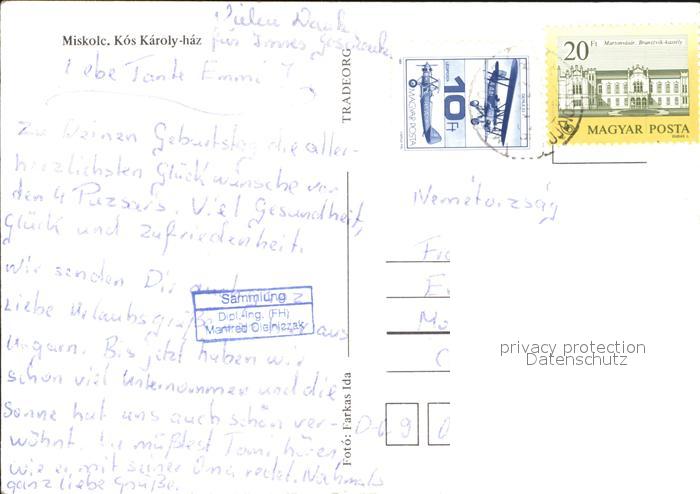 Vielen Dank
für Innes
Miskolc. Kós Károly-ház
Liebe Tante Emmi!
Zu Deinen Geburtstag die aller-
herzlichsten Glückwünsche von
den 4 Puzsar's. Viel Gesundheit,
Glück und Zufriedenheit.
Wir senden Dir auch
Liebe Urlaubsgrüße aus
Ungarn. Bis jetzt haben wir
schon viel Unternommen und die
Sonne hat uns auch schön ver-
wöhnt. Du müßtest Tomi hören,
wie er mit seiner Oma redet. Nochmals
ganz liebe Grüße.
Sammlung
Dipl.-Ing. (FH)
Manfred Olejniczak
TRADEORG
Fotó: Farkas Ida
MAGYAR POSTA
10 Ft
20 Ft
Martonvásár, Brunszvik-kastély
MAGYAR POSTA
Németország
D-O 9
privacy protection
Datenschutz